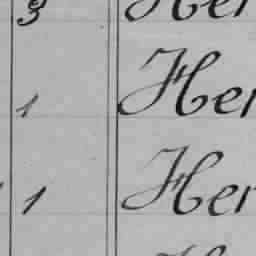 3 Her
1 Her
1 Her